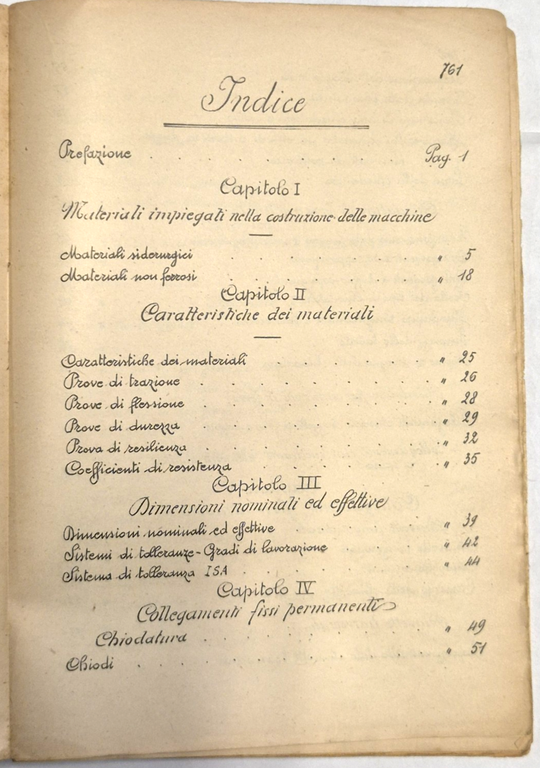 761
Indice
Prefazione . . . . . . . Pag. 1
Capitolo I
Materiali impiegati nella costruzione delle macchine
Materiali siderurgici . . . . . " 5
Materiali non ferrosi . . . . . " 18
Capitolo II
Caratteristiche dei materiali
Caratteristiche dei materiali . . . . . " 25
Prove di trazione . . . . . . . . " 26
Prove di flessione . . . . . . . . " 28
Prove di durezza . . . . . . . . " 29
Prova di resilienza . . . . . . . . " 32
Coefficienti di resistenza . . . . . . . " 35
Capitolo III
Dimensioni nominali ed effettive
Dimensioni nominali ed effettive . . . . . " 39
Sistemi di tolleranze - Gradi di lavorazione . . . . " 42
Sistema di tolleranza ISA . . . . . . . " 44
Capitolo IV
Collegamenti fissi permanenti
Chiodatura . . . . . . . . " 49
Chiodi . . . . . . . . . . " 51